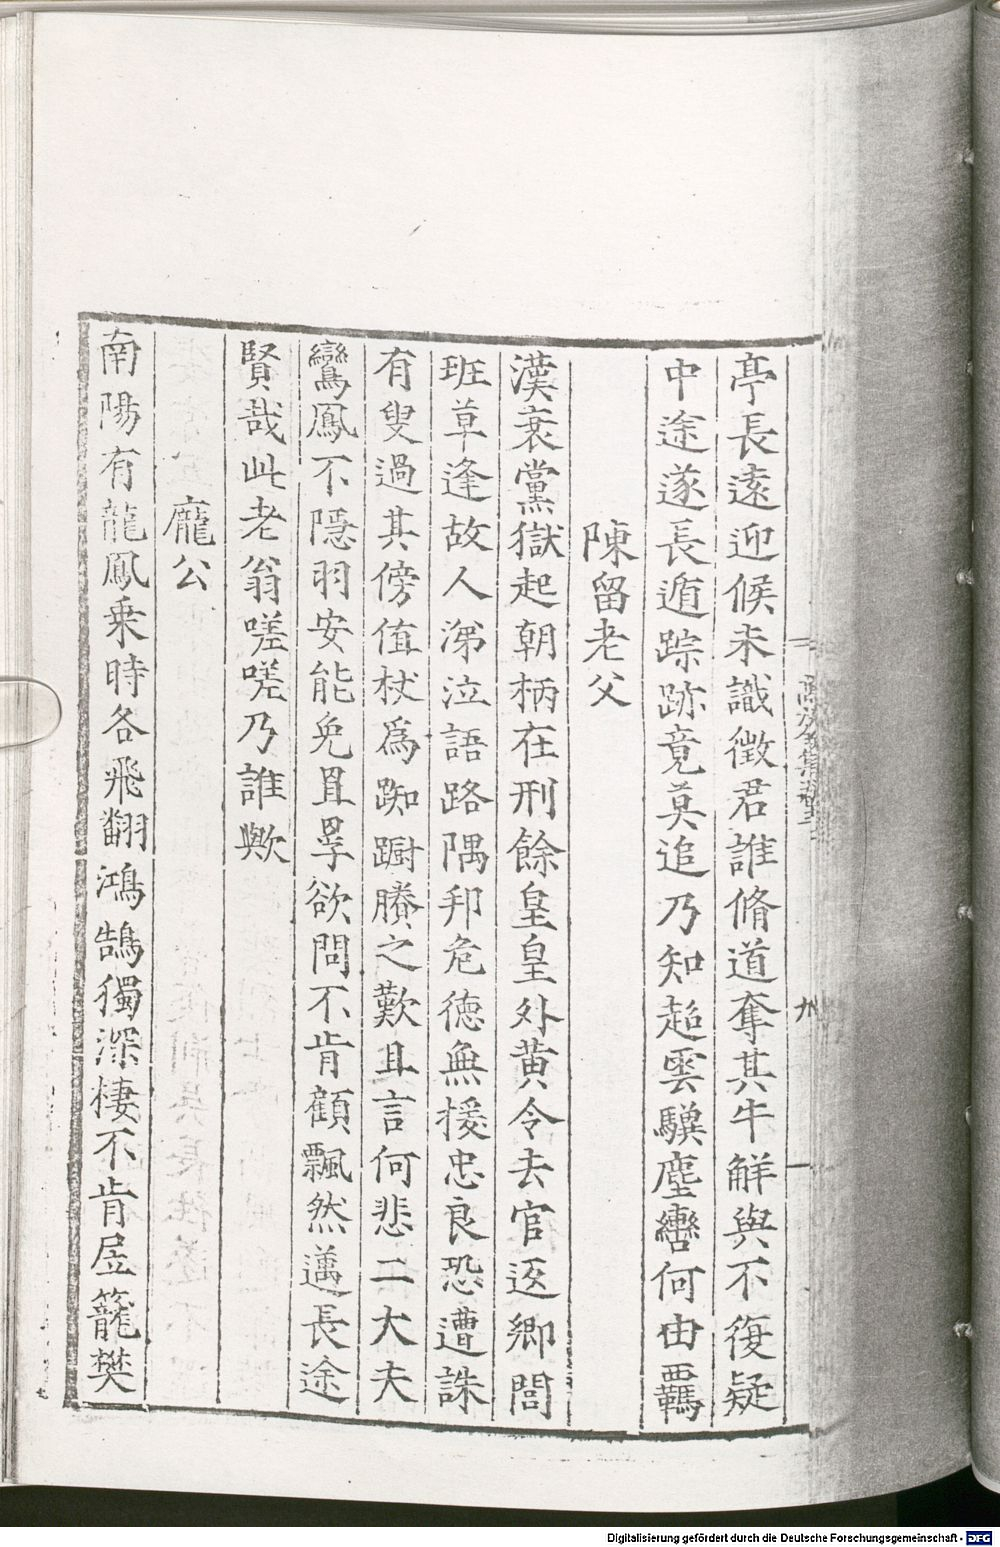 亭長遠迎候未識徵君誰脩道奪其牛解與不復疑
中途遂長遁踪跡竟莫追乃知超雲驥塵轡何由羈
陳留老父
漢衰黨獄起朝柄在刑餘皇皇外黄令去官返鄉閭
班草逢故人涕泣語路隅邦危德無援忠良恐遭誅
有叟過其傍值杖爲踟蹰賸之歎且言何悲二大夫
鸞鳳不隱羽安能免罝罦欲問不肯顧飄然邁長途
賢哉此老翁嗟嗟乃誰歟
龐公
南陽有龍鳳乗時各飛翻鴻鵠獨深棲不肯居籠樊
Digitalisierung gefördert durch die Deutsche Forschungsgemeinschaft - DFG